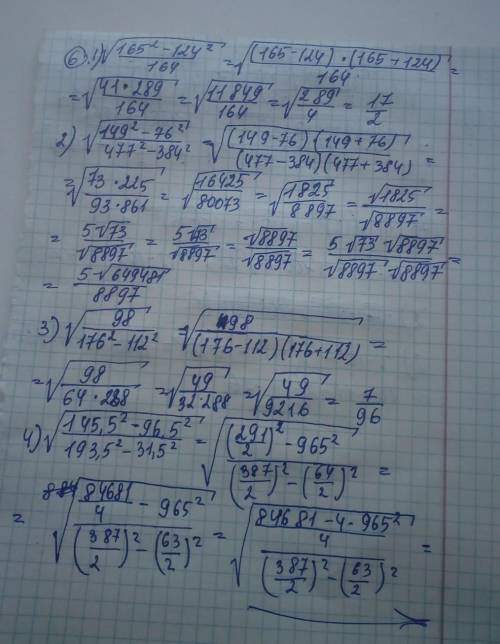 6) 1) √((165² - 124²)/164) = √(((165-124)·(165+124))/164) =
= √((41·289)/164) = √(11849/164) = √(289/4) = 17/2
2) √((149² - 76²)/(477² - 384²)) = √(((149-76)(149+76))/((477-384)(477+384))) =
= √((73·225)/(93·861)) = √(16425/80073) = √(1825/8897) = √1825/√8897 =
= 5√73/√8897 = 5√73/√8897 = √8897/√8897 = (5√73 √8897)/(√8897 √8897) =
= 5√649481/8897
3) √(98/(176² - 112²)) √(98/((176-112)(176+112))) =
= √(98/(64·288)) = √(49/(32·288)) = √(49/9216) = 7/96
4) √((145,5² - 96,5²)/(193,5² - 31,5²)) = √(((291/2)² - 965²)/((387/2)² - (64/2)²)) =
= √((84681/4 - 965²)/((387/2)² - (63/2)²)) = √(((84681 - 4·965²)/4)/((387/2)² - (63/2)²)) =